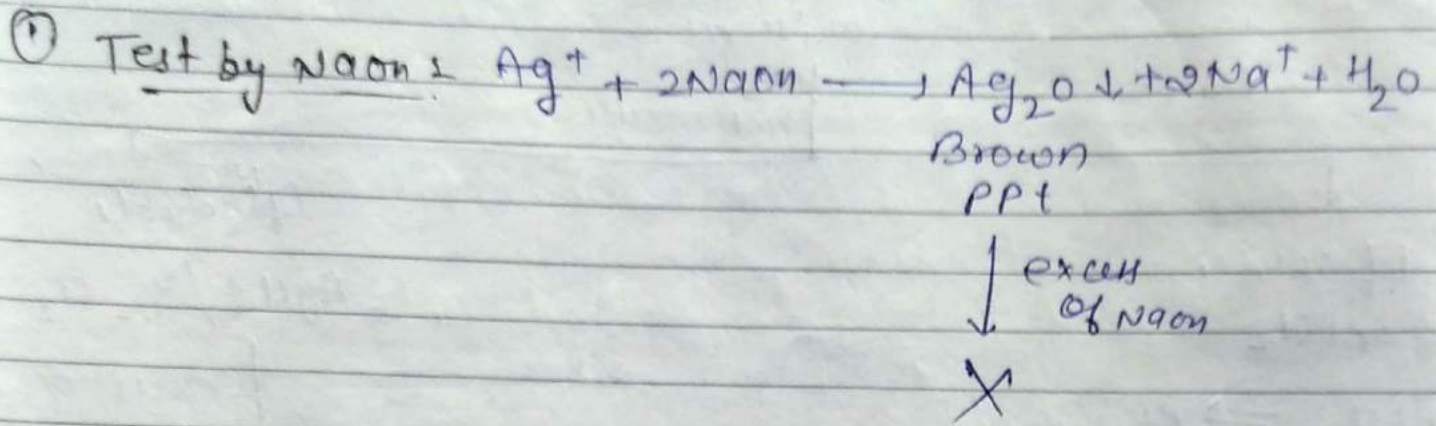 ① Test by NaOH: Ag⁺ + 2NaOH ⟶ Ag₂O ↓ + 2Na⁺ + H₂O
Brown
PPt
↓ excess
of NaOH
X